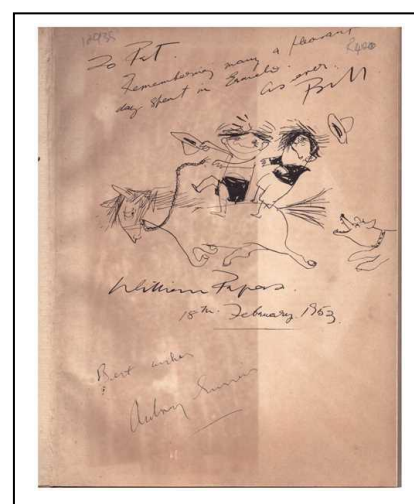 12935
R400
To Pat.
Remembering many a pleasant
day spent in Ermelo.
as ever
Bill
William Papas.
18th. February. 1963.
Best wishes
Aubrey